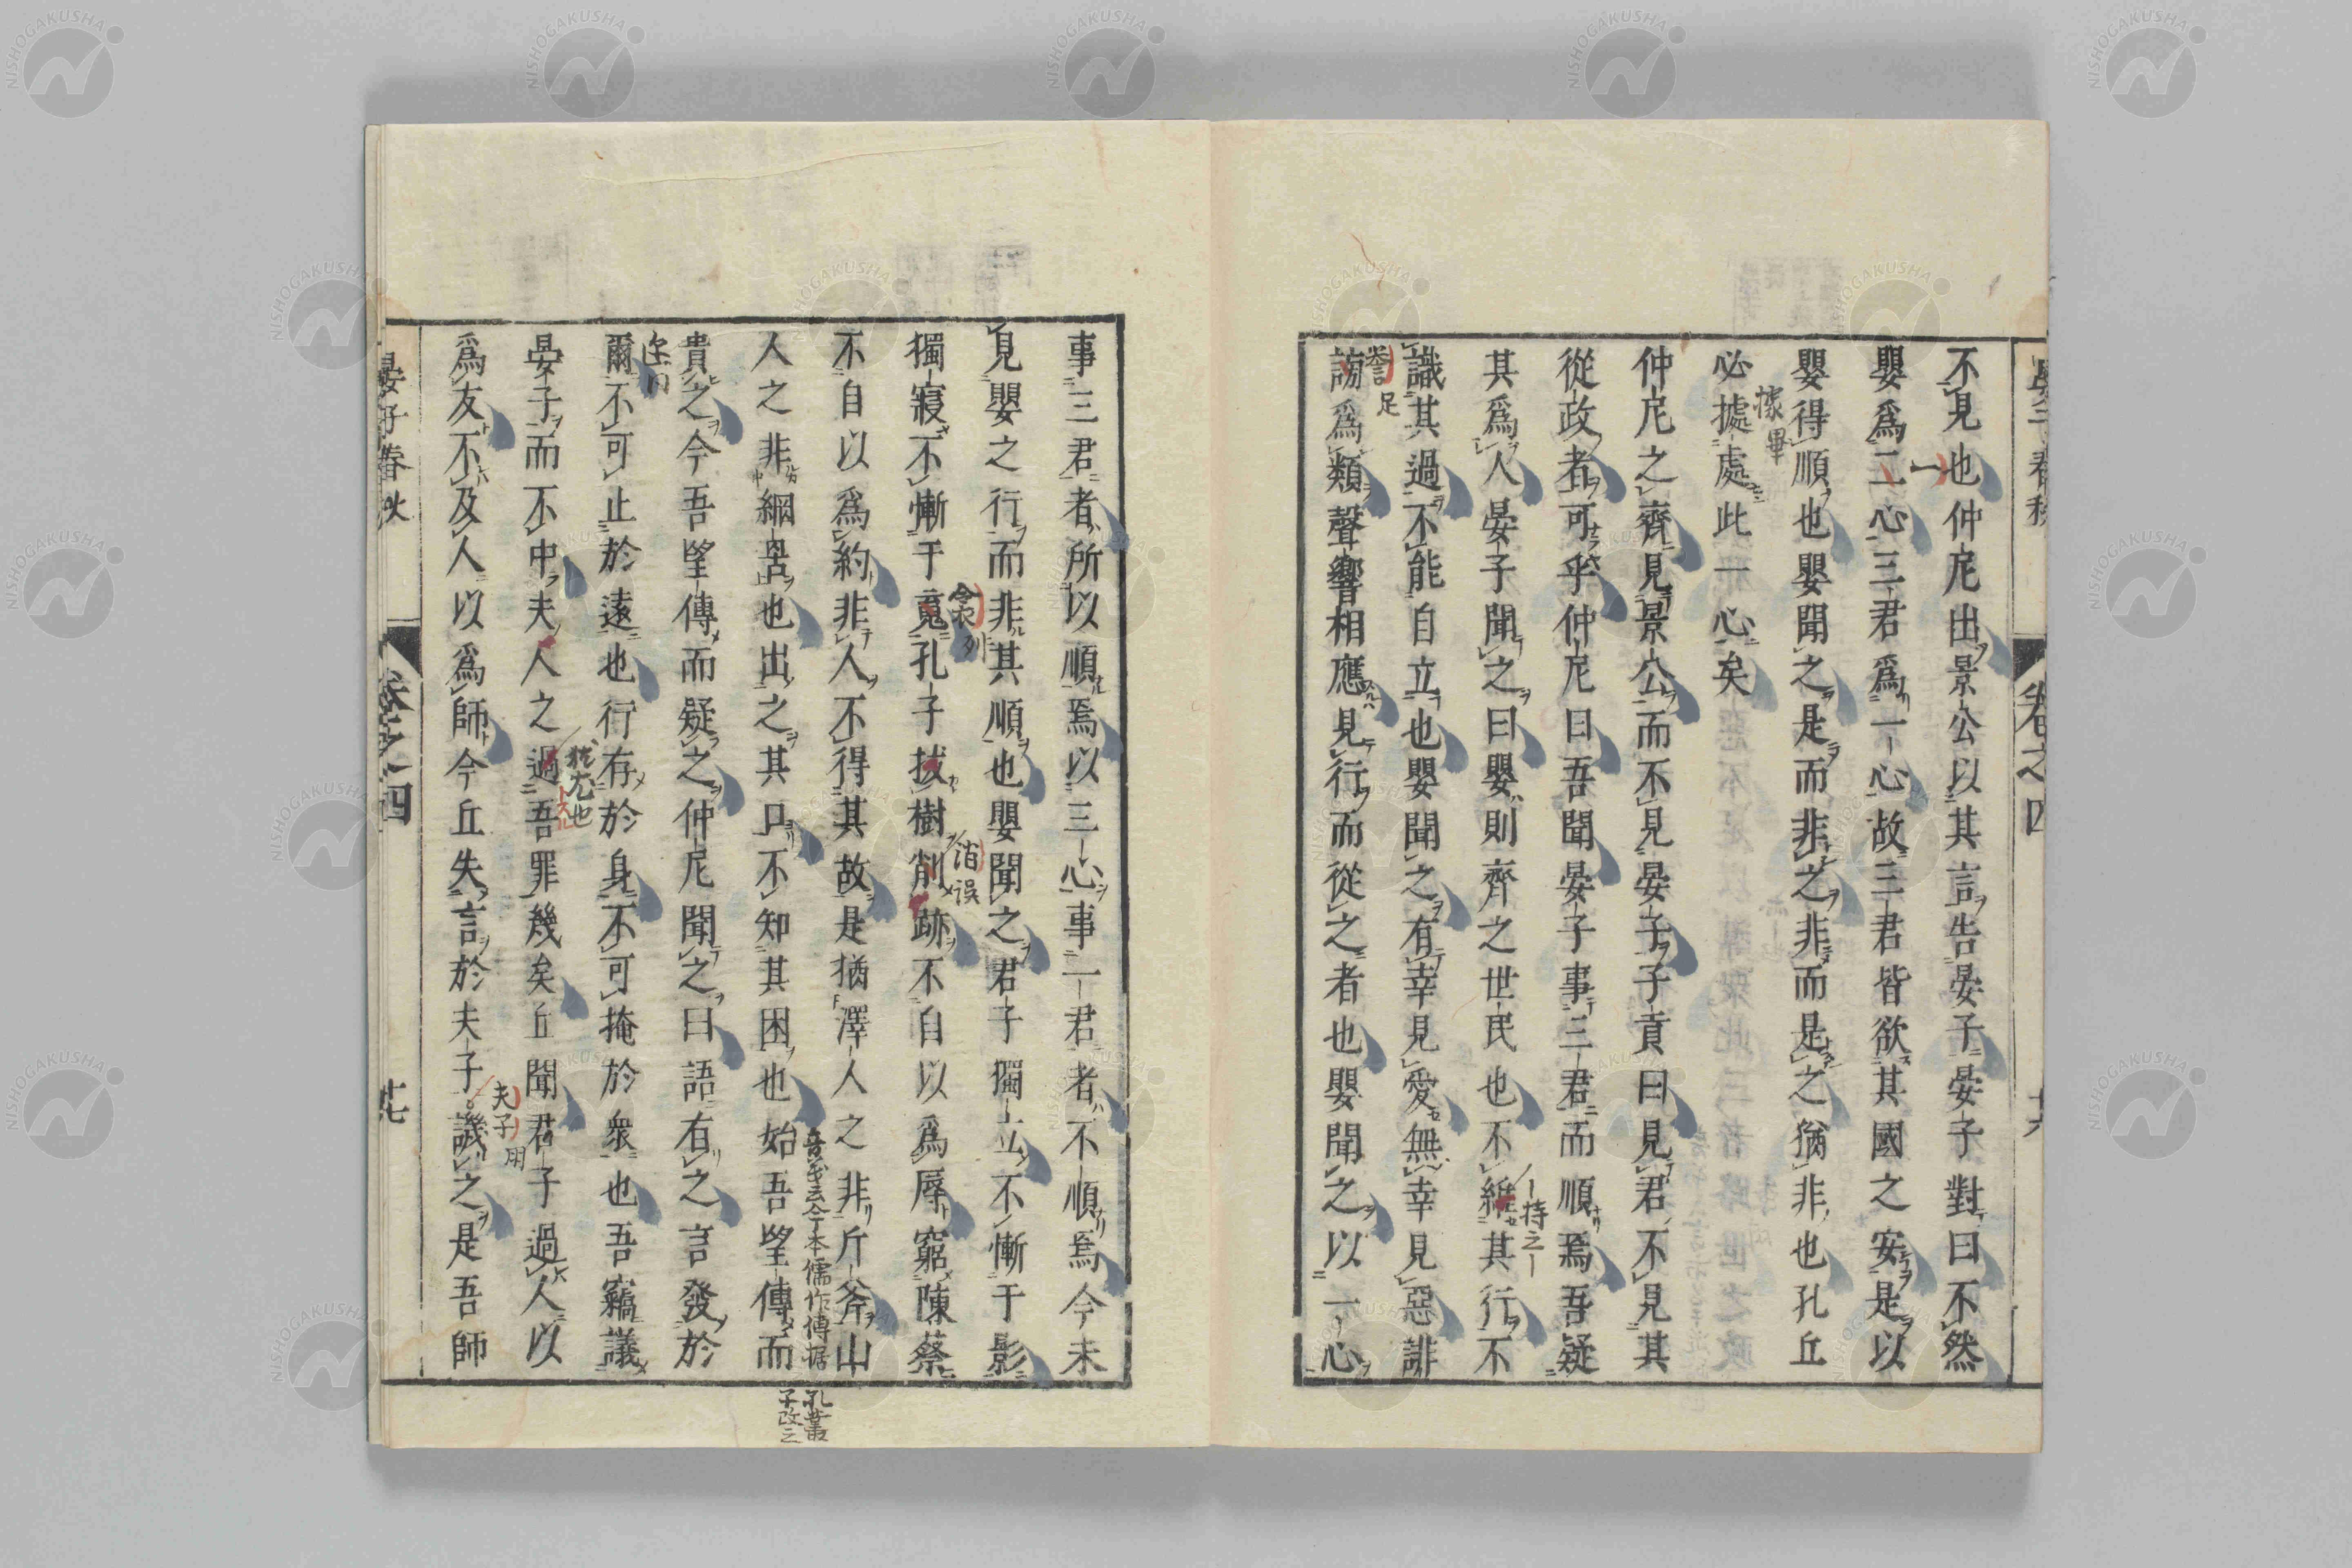 不見也仲尼出景公以其言告晏子晏子對曰不然
嬰爲二心三君爲一心故三君皆欲其國之安是以
嬰得順也嬰聞之是而非之非而是之猶非也孔丘
必據處此一心矣
仲尼之齊見景公而不見晏子子貢曰見君不見其
從政者可乎仲尼曰吾聞晏子事三君而順焉吾疑
其爲人晏子聞之曰嬰則齊之世民也不維其行不
識其過不能自立也嬰聞之有幸見愛無幸見惡誹
謗爲類聲響相應見行而從之者也嬰聞之以一心
事三君者所以順焉以三心事一君者不順焉今未
見嬰之行而非其順也嬰聞之君子獨立不慚于影
獨寢不慚于䰟孔子拔樹削跡不自以爲辱窮陳蔡
不自以爲約非人不得其故是猶澤人之非斤斧山
人之非網罟也出之其口不知其困也始吾望傳而
貴之今吾望傳而疑之仲尼聞之曰語有之言發於
爾不可止於遠也行存於身不可掩於衆也吾竊議
晏子而不中夫人之過吾罪幾矣丘聞君子過人以
爲友不及人以爲師今丘失言於夫子譏之是吾師
晏子春秋
卷之四
十七
一
據畢
持之
譽
足
衾
列
音義云今本儒作傳据
孔叢
子改之
猶尤也
夫子
用
NISHOGAKUSHA